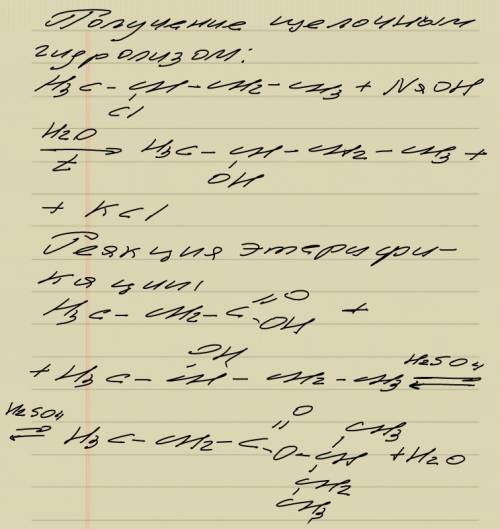 Получение щелочным
гидролизом:
H3C - CH - CH2 - CH3 + NaOH
Cl
H2O
t
H3C - CH - CH2 - CH3 +
OH
+ KCl
Реакция этерифи-
кации:
H3C - CH2 - C =O
OH +
OH
+ H3C - CH - CH2 - CH3 H2SO4 ⇌
H2SO4 ⇌ H3C - CH2 - C =O
O - CH - CH3 + H2O
CH2
CH3